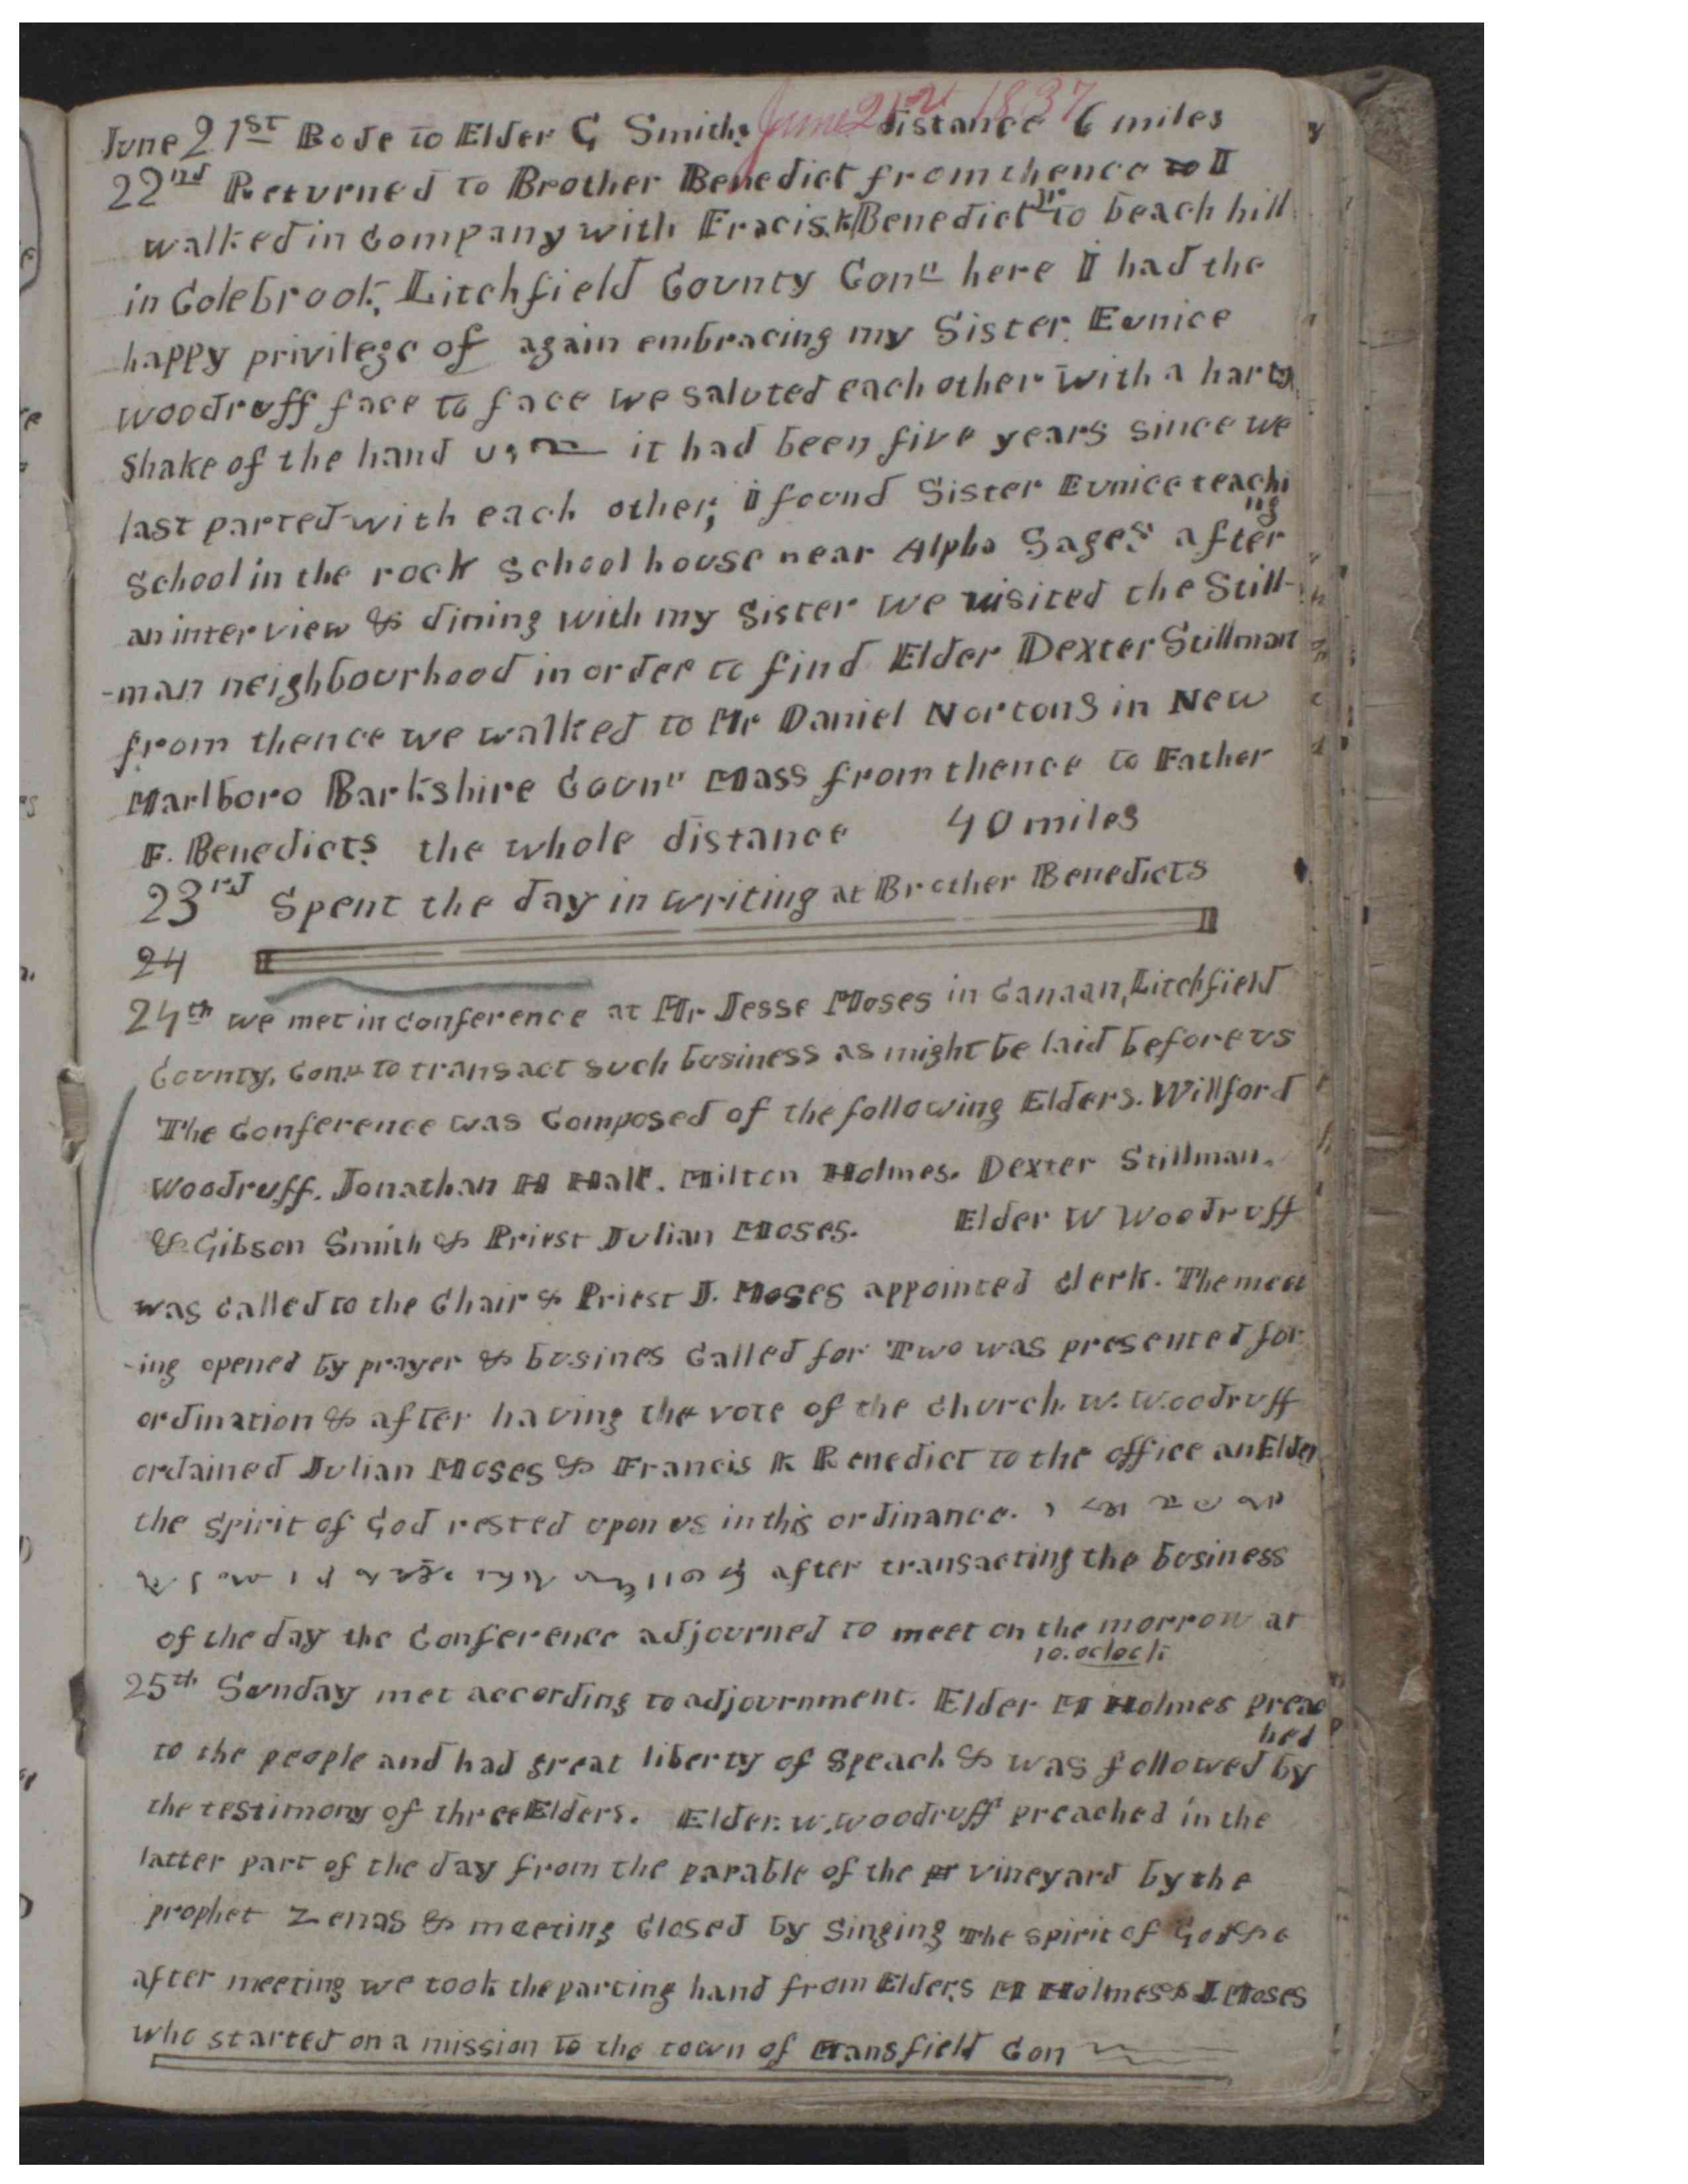 June 21st 1837
June 21st Rode to Elder G Smiths distance 6 miles
22nd Returned to Brother Benedict from thence to I
walked in Company with Fracis K Benedict jr to beach hill
in Colebrook, Litchfield County Con" here I had the
happy privilege of again embracing my Sister Eunice
woodruff face to face we saluted each other with a harty
shake of the hand it had been five years since we
last parted with each other; I found Sister Eunice teachi
ng
School in the rock School house near Alpha Sages after
an interview & dining with my Sister we visited the Still-
-man neighbourhood in order to find Elder Dexter Stillman
from thence we walked to Mr Daniel Nortons in New
Marlboro Barkshire Coun" Mass from thence to Father
F. Benedicts the whole distance 40 miles
23rd Spent the day in writing at Brother Benedicts
24
24th we met in conference at Mr Jesse Moses in Canaan, Litchfield
County, Con." to transact such business as might be laid before us
The Conference was Composed of the following Elders. Willford
Woodruff. Jonathan H Hale. Milton Holmes. Dexter Stillman.
& Gibson Smith & Priest Julian Moses. Elder W Woodruff
was called to the Chair & Priest J. Moses appointed Clerk. The meet
-ing opened by prayer & busines Called for Two was presented for
ordination & after having the vote of the Church W. Woodruff
ordained Julian Moses & Francis K Benedict to the office an Elder
the spirit of God rested upon us in this ordinance.
after transacting the business
of the day the Conference adjourned to meet on the morrow at
10. oclock
25th Sunday met according to adjournment. Elder M Holmes preac
hed
to the people and had great liberty of Speach & was followed by
the testimony of three Elders. Elder. W. Woodruff preached in the
latter part of the day from the parable of the vineyard by the
prophet Zenas & meeting Closed by Singing The spirit of God &c
after meeting we took the parting hand from Elders M Holmes & J. Moses
who started on a mission to the town of Mansfield Con